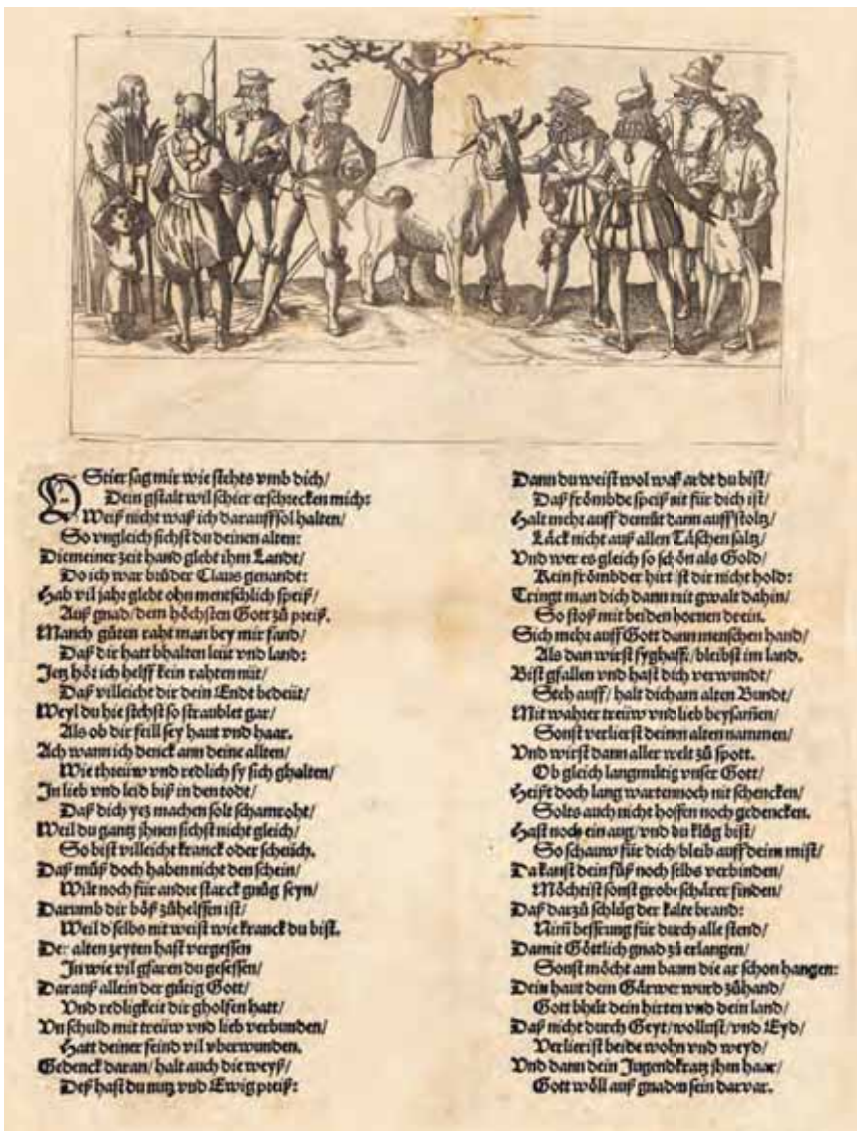 O Stier sag mir wie stehts vmb dich/
Dein gstalt wil schier erschrecken mich:
Weiß nicht waß ich darauff sol halten/
So vngleich sichst du deinen alten:
Die meiner zeit hand glebt ihm Landt/
Do ich war brůder Claus genandt:
Hab vil jahr glebt ohn menschlich speiß/
Auß gnad/ dem höchsten Gott zů preiß.
Manch gůten raht man bey mir fand/
Daß dir hatt bhalten leüt vnd land:
Jetz hört ich helff kein rahten nüt/
Daß villeicht dir dein Endt bedeüt/
Weyl du hie stehst so straublet gar/
Als ob dir feill sey haut vnd haar.
Ach wann ich denck ann deine allten/
Wie threüw vnd redlich sy sich ghalten/
In lieb vnd leid biß in den todt/
Daß dich yez machen solt schamroht/
Weil du gantz jhnen sichst nicht gleich/
So bist villeicht kranck oder scheüch.
Daß můß doch haben nicht den schein/
Wilt noch für andre starck gnůg seyn/
Darumb dir böß zůhelffen ist/
Weil d'selbs nit weist wie kranck du bist.
Der alten zeyten hast vergessen
In wie vil gfaren du gesessen/
Darauß allein der gütig Gott/
Vnd redligkeit dir gholfen hatt/
Vnschuld mit treüw vnd lieb verbunden/
Hatt deiner feind vil vberwunden.
Gedenck daran/ halt auch die weyß/
Deß hast du nutz vnd Ewig preiß:
Dann du weist wol waß ardt du bist/
Daß frömbde speiß nit für dich ist/
Halt mehr auff demůt dann auff stoltz/
Läck nicht auß allen Täschen saltz/
Vnd wer es gleich so schön als Gold/
Kein frömbder hirt ist dir nicht hold:
Tringt man dich dann mit gwalt dahin/
So stoß mit beiden hornen drein.
Sich mehr auff Gott dann menschen hand/
Als dan wirst syghafft/ bleibst im land.
Bist gfallen vnd hast dich verwundt/
Steh auff/ halt dich am alten Bundt/
Mit wahrer treüw vnd lieb beysamen/
Sonst verlierst deinen alten nammen/
Vnd wirst dann aller welt zů spott.
Ob gleich langmütig vnser Gott/
Heißt doch lang warten noch nit schencken/
Solts auch nicht hoffen noch gedencken.
Hast noch ein aug/ vnd du klůg bist/
So schauw für dich/ bleib auff deim mist/
Da kanst dein fůß noch selbs verbinden/
Möchtist sonst grobe schärer finden/
Daß darzů schlůg der kalte brand:
Nim bessrung für durch alle stend/
Damit Göttlich gnad zů erlangen/
Sonst möcht am baum die ax schon hangen:
Dein haut dem Gärwer wurd zůhand/
Gott bhelt dein hirten vnd dein land/
Daß nicht durch Geyt/ wollust/ vnd Eyd/
Verlierist beide wohn vnd weyd/
Vnd dann dein Jugendkratz jhm haar/
Gott wöll auß gnaden sein darvar.